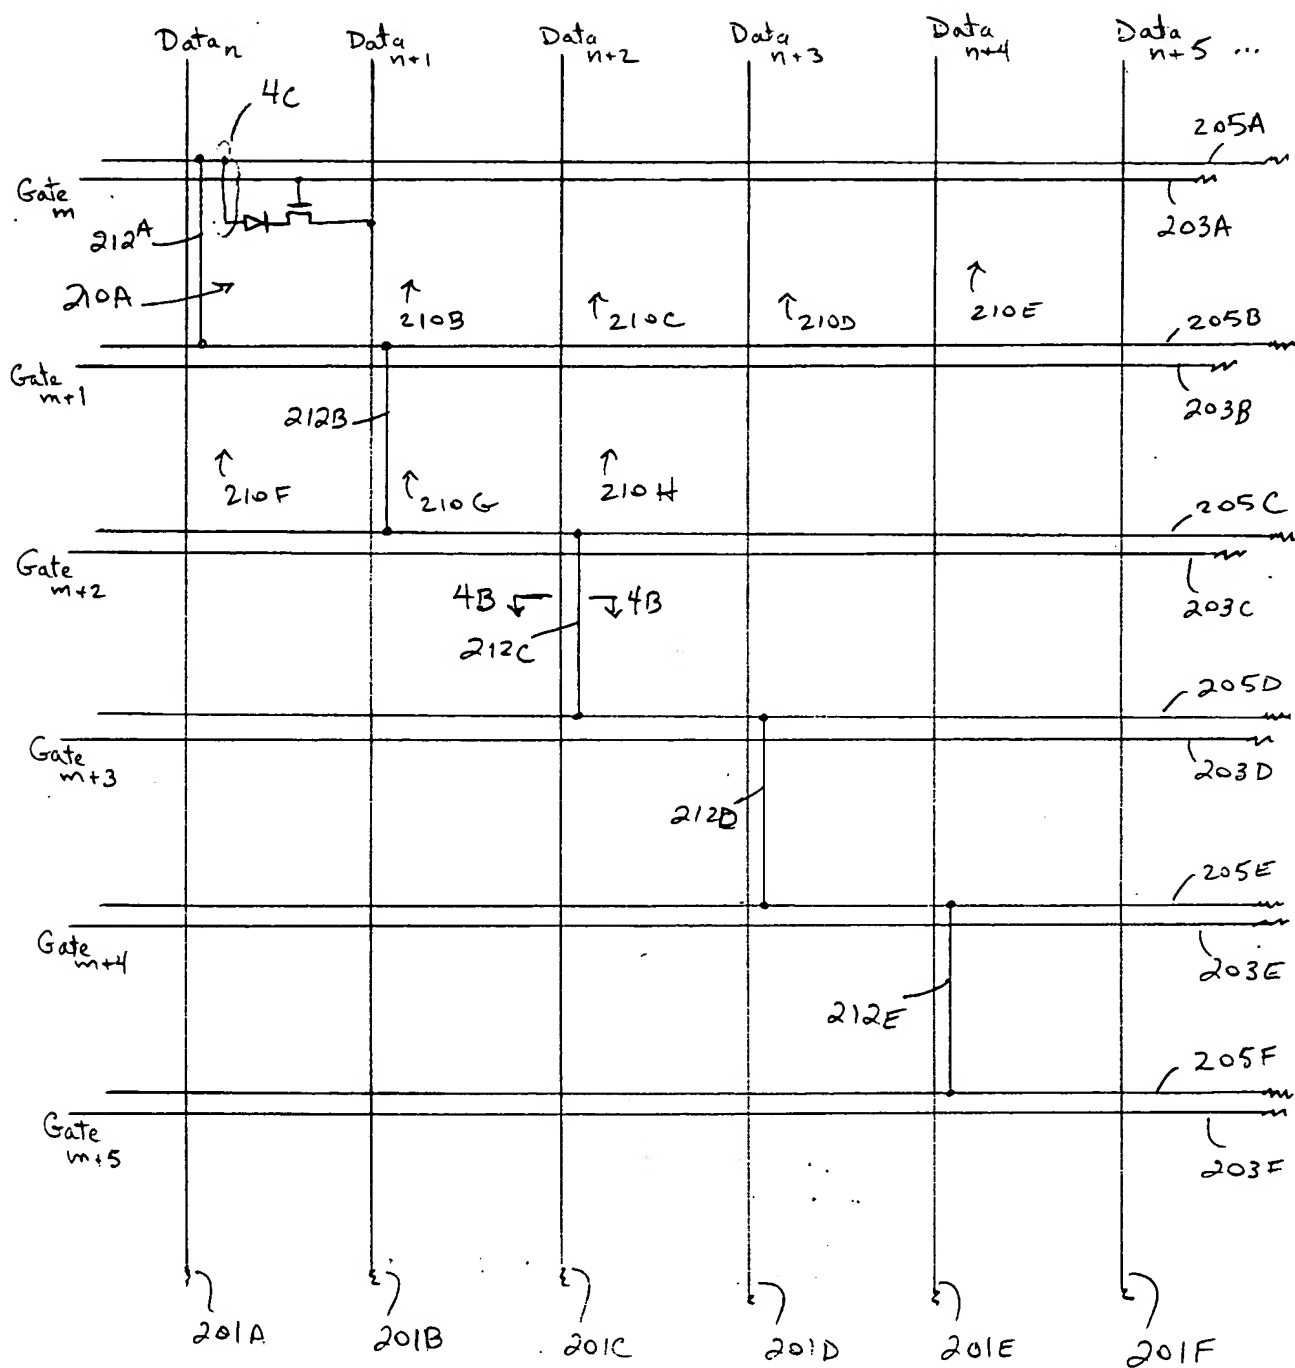 Data n
Data n+1
Data n+2
Data n+3
Data n+4
Data n+5 ...
4C
205A
Gate m
203A
212A
210A
210B
210C
210D
210E
205B
Gate m+1
203B
212B
210F
210G
210H
205C
Gate m+2
203C
4B
4B
212C
205D
Gate m+3
203D
212D
205E
Gate m+4
203E
212E
205F
Gate m+5
203F
201A
201B
201C
201D
201E
201F